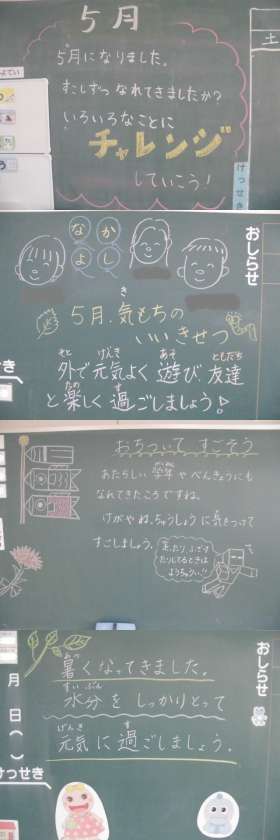 5月
5月になりました。
すこしずつ なれてきましたか？
いろいろなことに
チャレンジ
していこう！
土
けっせき
なかよし
おしらせ
5月.気もちの
き
いいきせつ
外で元気よく遊び友達
そと げんき あそ ともだち
と楽しく過ごしましょう！
たの す
おちついて すごそう
あたらしい 学年やべんきょうにも
なれてきたころですね。
けがや ねっちゅうしょうに気をつけて
すごしましょう。
走ったり ふざけ
たりしてるときは
ようちゅうい!!
おしらせ
暑くなってきました。
あつ
水分をしっかりとって
すいぶん
元気に過ごしましょう。
げんき す
月
日
( )
けっせき